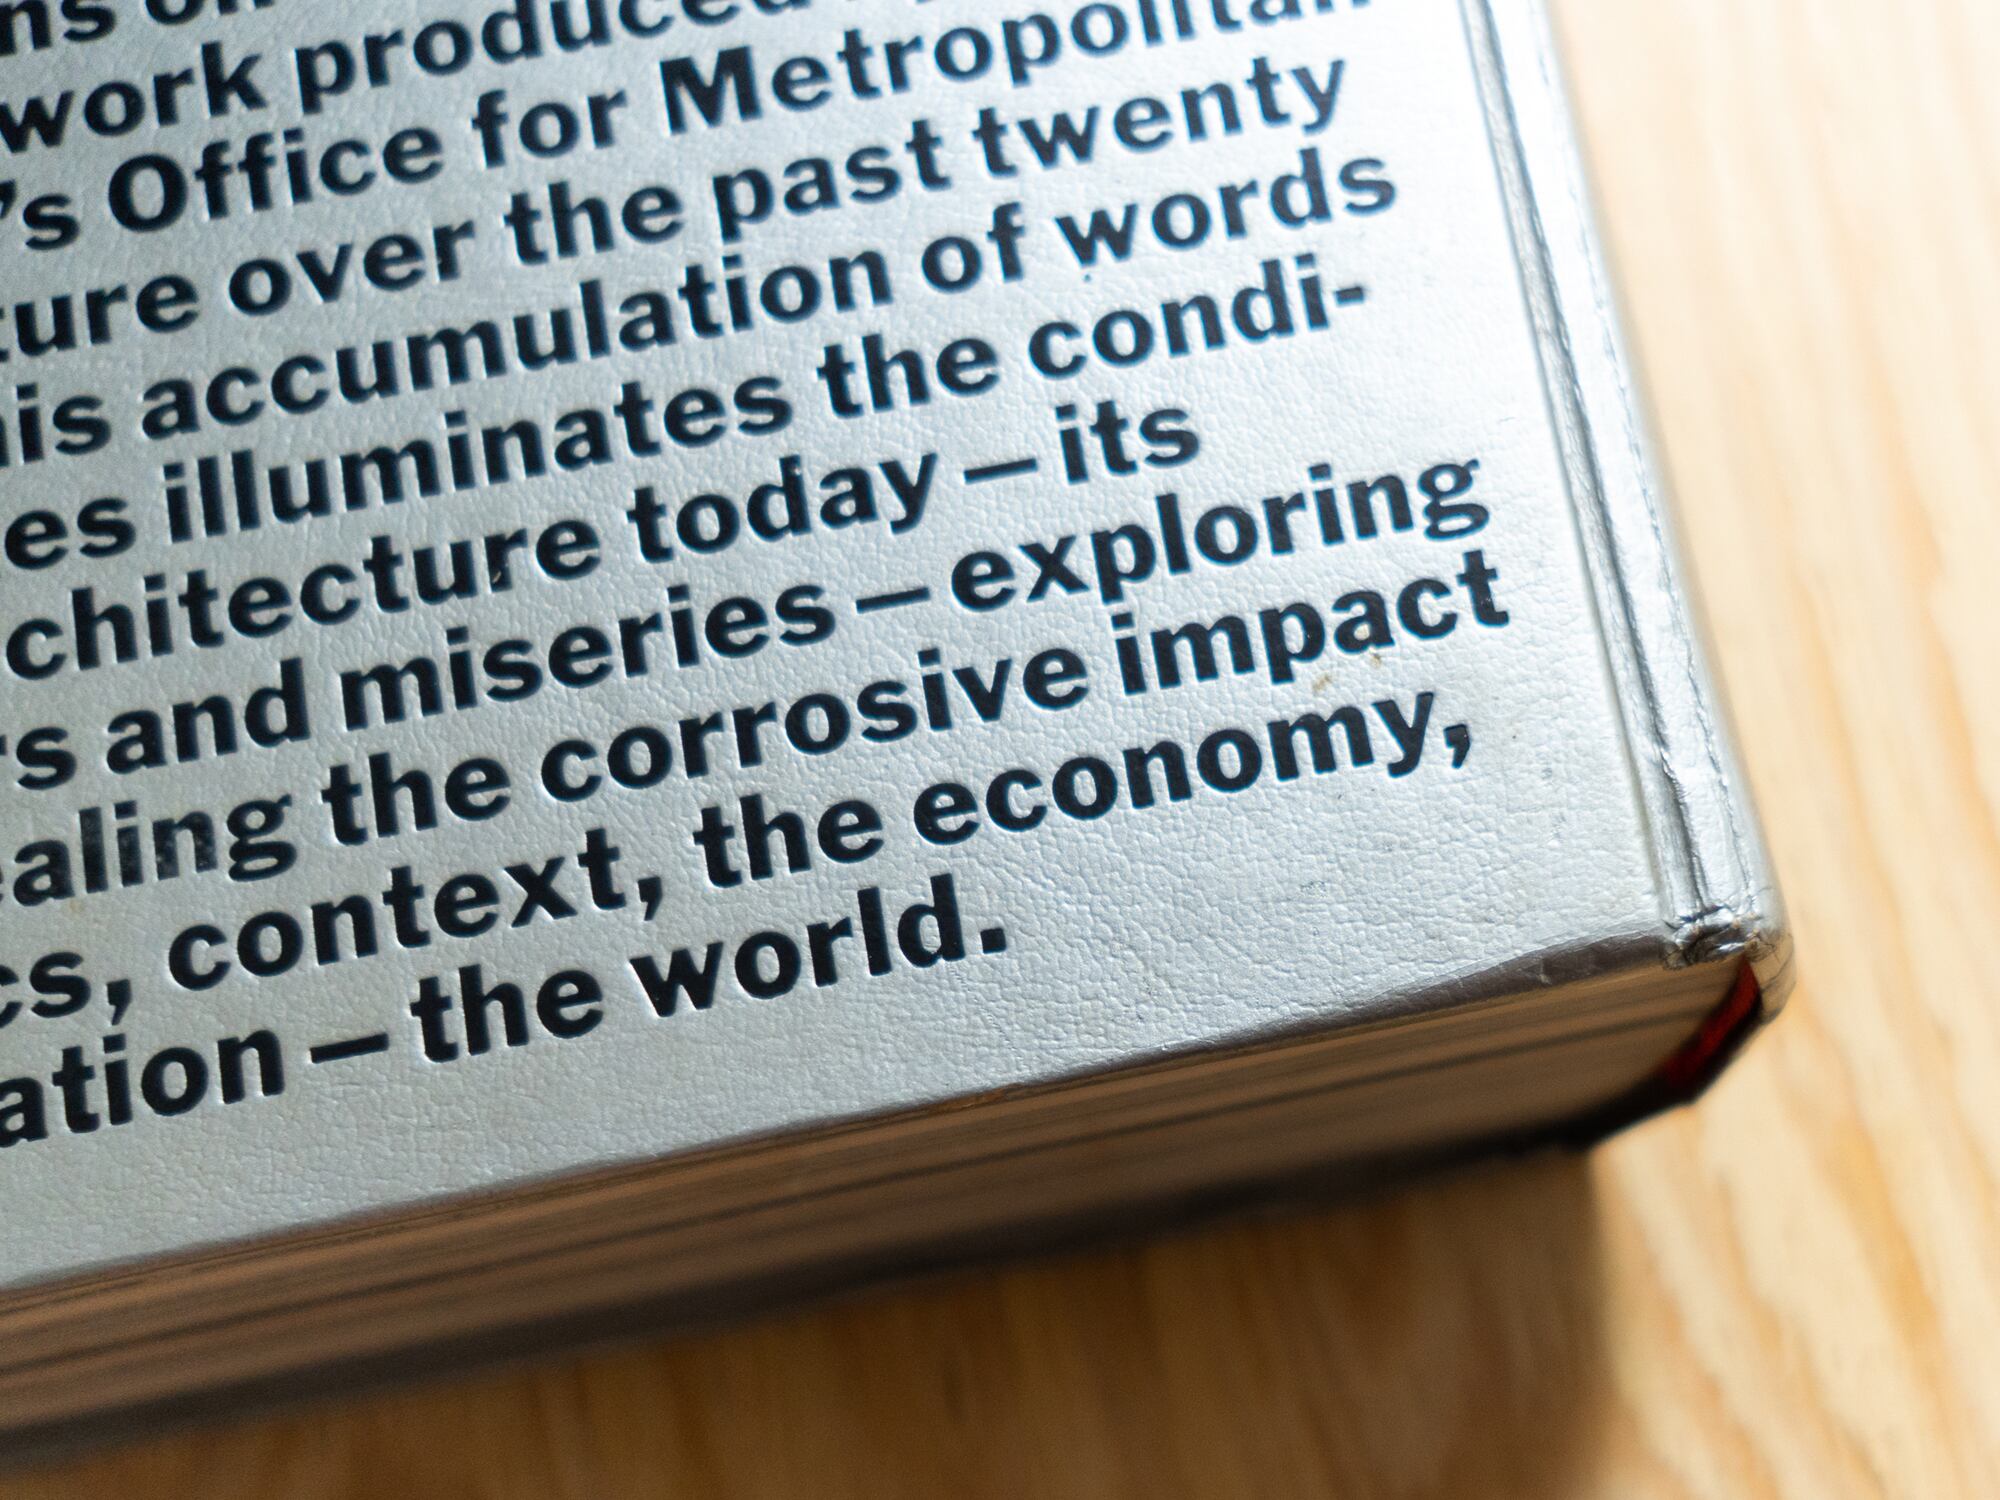 work produced
's Office for Metropolitan
ture over the past twenty
his accumulation of words
es illuminates the condi-
chitecture today—its
rs and miseries—exploring
ealing the corrosive impact
cs, context, the economy,
ation—the world.